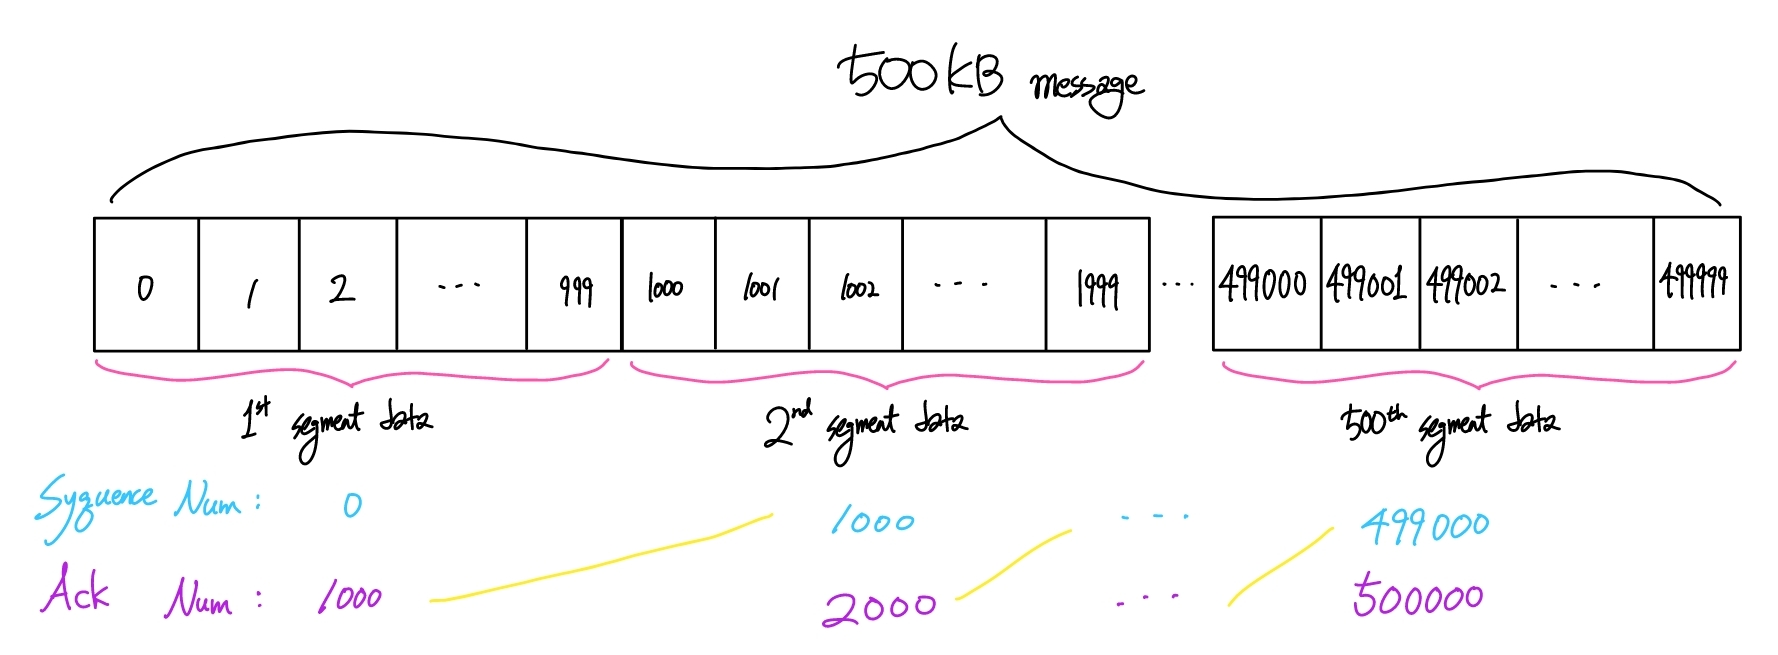 500KB message
0 1 2 ... 999 1000 1001 1002 ... 1999 ... 499000 499001 499002 ... 499999
1st segment data 2nd segment data 500th segment data
Syquence Num: 0 1000 ... 499000
Ack Num: 1000 2000 ... 500000